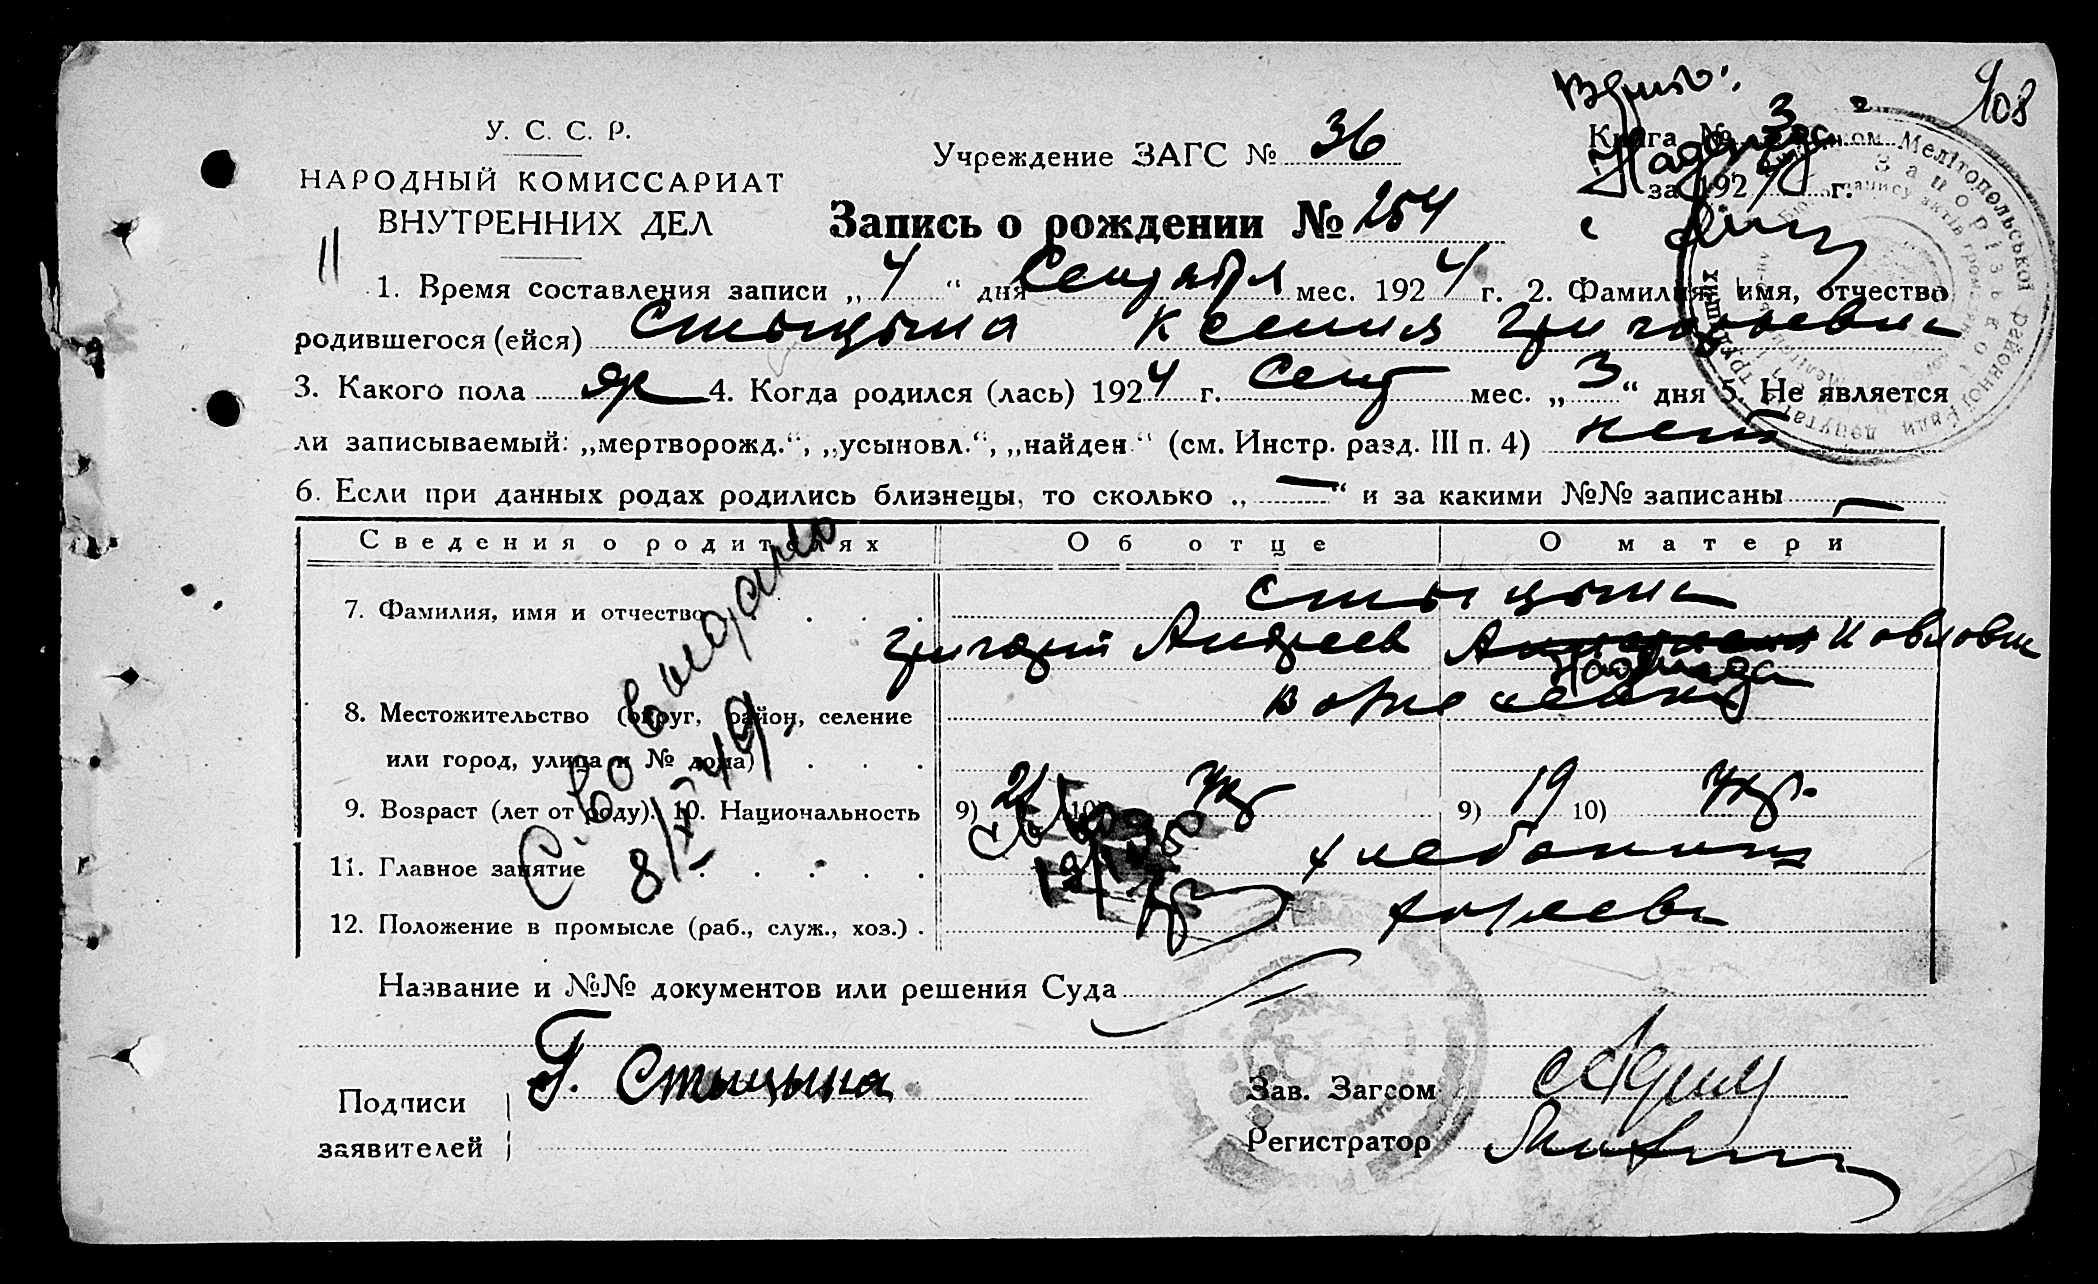 108
У. С. С. Р.
НАРОДНЫЙ КОМИССАРИАТ
ВНУТРЕННИХ ДЕЛ
Учреждение ЗАГС № 36
Книга № 3
за 1924 г.
Запись о рождении № 254
1. Время составления записи „4“ дня Сентября мес. 1924 г. 2. Фамилия, имя, отчество
родившегося (ейся) Стыцына Ксения Григорьевна
3. Какого пола 4. Когда родился (лась) 1924 г. Сент мес. „3“ дня 5. Не является
ли записываемый: „мертворожд.“, „усыновл.“, „найден“ (см. Инстр. разд. III п. 4) нет
6. Если при данных родах родились близнецы, то сколько „—“ и за какими №№ записаны —
Сведения о родителях Об отце О матери
7. Фамилия, имя и отчество Стыцына
Григорий Андреев Павловна
Надежда
8. Местожительство (округ, район, селение
или город, улица и № дома)
9. Возраст (лет от роду). 10. Национальность 9) 21 10) Укр 9) 19 10) Укр.
11. Главное занятие хлебопашец
12. Положение в промысле (раб., служ., хоз.)
С-во выдано
8/IX 49
Название и №№ документов или решения Суда
Подписи
заявителей
Г. Стыцына
Зав. Загсом
Регистратор